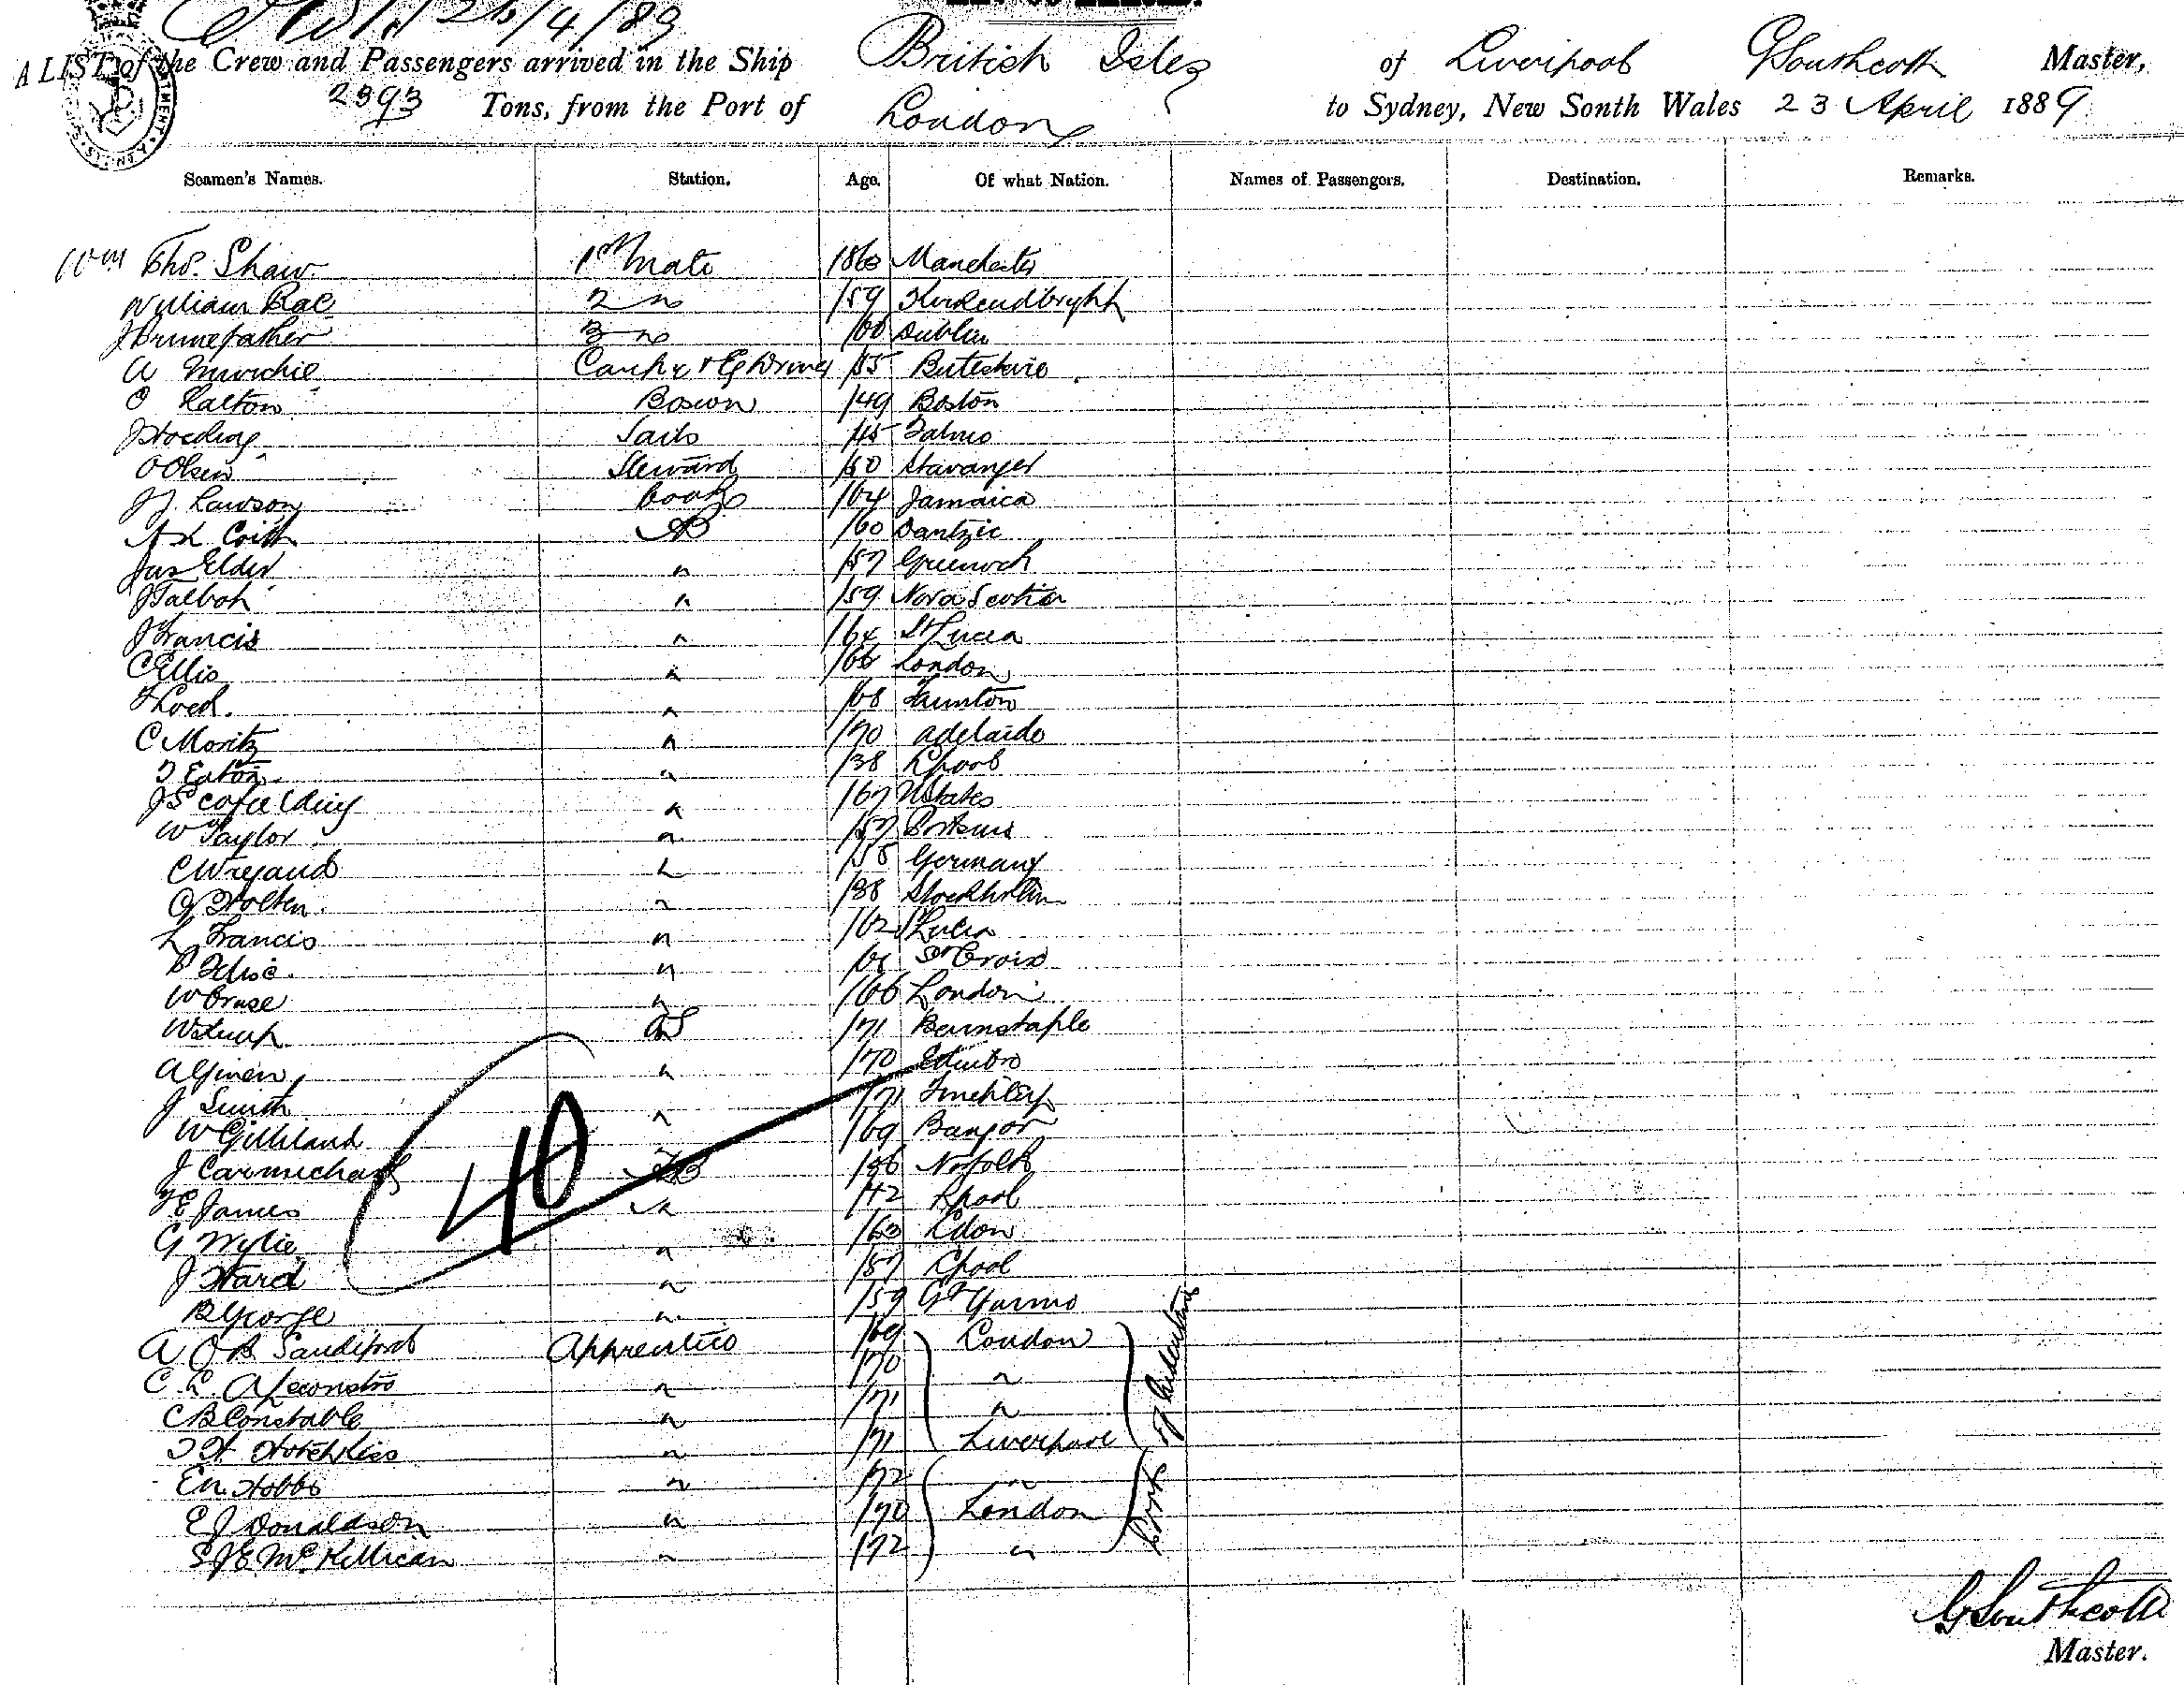 26/4/89
A LIST of the Crew and Passengers arrived in the Ship British Isles of Liverpool G Southcott Master,
2393 Tons, from the Port of London to Sydney, New South Wales 23 April 1889
Seamen's Names. Station. Age. Of what Nation. Names of Passengers. Destination. Remarks.
Wm Thos. Shaw 1st Mate 1860 Manchester
William Rae 2 " /59 Kirkcudbryht
3 " Dublin
A Murchie Carpr & Eg Driver /55 Buteshire
O Ralton Boswn /49 Boston
Sails /45 Falmo
O Olsen Steward /60 Stavanger
J J. Lawson Cook /64 Jamaica
AB /60 Dantzic
Jas Elder " /57 Greenock
J Talbot " /59 Nova Scotia
J Francis " /64 St Lucia
C Ellis " /66 London
F Lock. " /68 Taunton
C Moritz " /70 Adelaide
T Eaton " /38 Lpool
" /67 UStates
W Taylor " /57 Portsmo
C Wiegand " /58 Germany
G Holten. " /38 Stockholm
L Francis " /62 St Lucia
" St Croix
W Cruse " /66 London
OS /71 Barnstaple
A Given " /70 Edinbro
J Smith " /71 Finchley
W Gilliland /69 Bangor
J Carmichael AB /56 Norfolk
F E James " /42 Lpool
G Wylie " /60 Ldon
J Ward " /57 Lpool
B George " /59 Gt Yarmo
A O B Sandiford Apprentice /69 London
C L A " /70 "
C B Constable " /71 "
T H Hotchkiss " /71 Liverpool
E N. Hobbs " /72 "
E J Donaldson " /70 London
S J E McKillican " /72 "
of Indenture
40
G Southcott
Master.